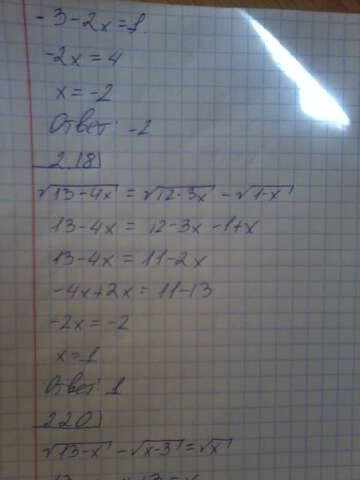 -3-2x=1
-2x=4
x=-2
Ответ: -2
2.18
√13-4x = √12-3x - √1-x
13-4x = 12-3x-1+x
13-4x = 11-2x
-4x+2x = 11-13
-2x=-2
x=1
Ответ 1
220
√13-x - √x-3 = √x